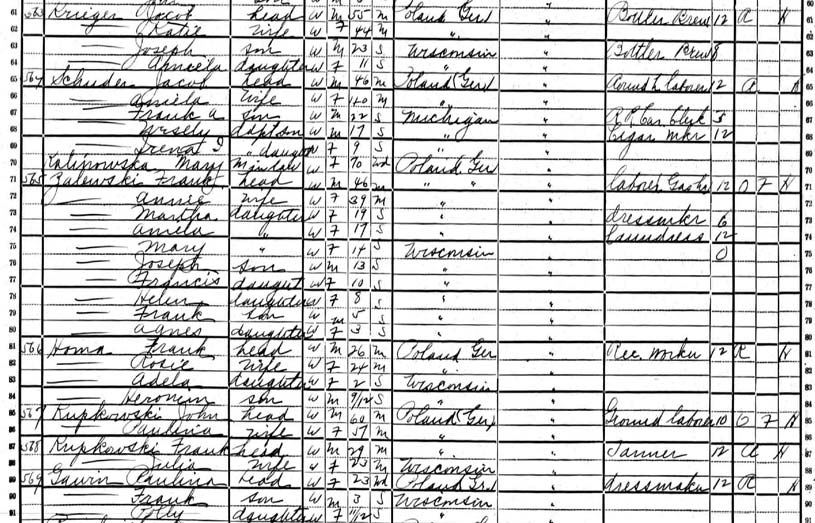 61 563 Krieger Jacob head W M 55 M Poland Ger " Bottler Brew 12 R H 61
62 — Katie wife W F 44 M " " 62
63 — Joseph son W M 23 S Wisconsin " Bottler Brew 8 63
64 — daughter W F 11 S " " 64
65 564 Schuder Jacob head W M 46 M Poland (Ger) " laborer 12 R H 65
66 — Amiela wife W F 40 M " " 66
67 — Frank A son W M 22 S Michigan " R.R. Car Clerk 5 67
68 — Wesely W M 17 S " " Cigar Mkr 12 68
69 — Irena I " daught W F 9 S " " 69
70 Kalipowska Mary W F 70 Wd Poland Ger " 70
71 565 Zalewski Frank head W M 46 M " " " laborer 12 O F H 71
72 — Annie wife W F 39 M " " 72
73 — Martha daughter W F 19 S " " dressmkr 6 73
74 — Amela " W F 17 S " " Laundress 12 74
75 — Mary " W F 14 S Wisconsin " 0 75
76 — Joseph son W M 13 S " " 76
77 — Francis daught W F 10 S " " 77
78 — Helen daughter W F 8 S " " 78
79 — Frank son W M 5 S " " 79
80 — Agnes daughter W F 3 S " " 80
81 566 Homa Frank head W M 26 M Poland Ger " worker 12 R H 81
82 — Rosie wife W F 24 M " " 82
83 — Adela daughter W F 2 S Wisconsin " 83
84 — Heronim son W M 9/12 S " " 84
85 567 Kupkowski John head W M 60 M Poland (Ger) " Ground laborer 10 O F H 85
86 — Paulina wife W F 57 M " " 86
87 568 Kupkowski Frank head W M 29 M " " Tanner 12 R H 87
88 — Julia wife W F 23 M Wisconsin " 88
89 569 Gawin Paulina head W F 23 Wd Poland Ger " dressmaker 12 R H 89
90 — Frank son W M 3 S Wisconsin " 90
91 — Polly daughter W F 11/12 S " " 91